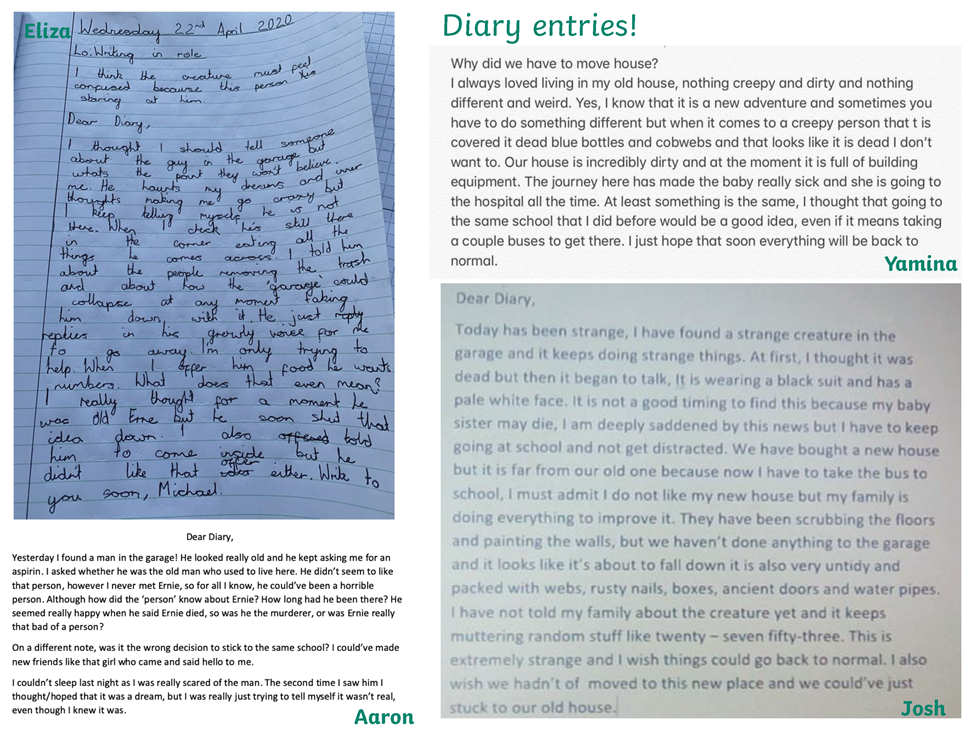 Eliza
Wednesday 22nd April 2020
Lo: Writing in role
I think the creature must feel
confused because this person his
staring at him.
Dear Diary,
I thought I should tell someone
about the guy in the garage but
whats the point they won't believe.
me. He haunts my dreams and inner
thoughts making me go crazy but
I keep telling myself he is not
there. When I check his still there
in the corner eating all the
things he comes across. I told him
about the people removing the trash
and about how the 'garage' could
collapse at any moment taking
him down, with it. He just reply
replies in his growly voice for me
to go away. I'm only trying to
help. When I offer him food he wants
numbers. What does that even mean?
I really thought for a moment he
was old Erne but he soon shut that
idea down. I also offered told
him to come inside but he
didn't like that offer either. Write to
you soon, Michael.
Dear Diary,
Yesterday I found a man in the garage! He looked really old and he kept asking me for an
aspirin. I asked whether he was the old man who used to live here. He didn't seem to like
that person, however I never met Ernie, so for all I know, he could've been a horrible
person. Although how did the 'person' know about Ernie? How long had he been there? He
seemed really happy when he said Ernie died, so was he the murderer, or was Ernie really
that bad of a person?
On a different note, was it the wrong decision to stick to the same school? I could've made
new friends like that girl who came and said hello to me.
I couldn't sleep last night as I was really scared of the man. The second time I saw him I
thought/hoped that it was a dream, but I was really just trying to tell myself it wasn't real,
even though I knew it was.
Aaron
Diary entries!
Why did we have to move house?
I always loved living in my old house, nothing creepy and dirty and nothing
different and weird. Yes, I know that it is a new adventure and sometimes you
have to do something different but when it comes to a creepy person that t is
covered it dead blue bottles and cobwebs and that looks like it is dead I don't
want to. Our house is incredibly dirty and at the moment it is full of building
equipment. The journey here has made the baby really sick and she is going to
the hospital all the time. At least something is the same, I thought that going to
the same school that I did before would be a good idea, even if it means taking
a couple buses to get there. I just hope that soon everything will be back to
normal.
Yamina
Dear Diary,
Today has been strange, I have found a strange creature in the
garage and it keeps doing strange things. At first, I thought it was
dead but then it began to talk, It is wearing a black suit and has a
pale white face. It is not a good timing to find this because my baby
sister may die, I am deeply saddened by this news but I have to keep
going at school and not get distracted. We have bought a new house
but it is far from our old one because now I have to take the bus to
school, I must admit I do not like my new house but my family is
doing everything to improve it. They have been scrubbing the floors
and painting the walls, but we haven't done anything to the garage
and it looks like it's about to fall down it is also very untidy and
packed with webs, rusty nails, boxes, ancient doors and water pipes.
I have not told my family about the creature yet and it keeps
muttering random stuff like twenty – seven fifty-three. This is
extremely strange and I wish things could go back to normal. I also
wish we hadn't of moved to this new place and we could've just
stuck to our old house.
Josh